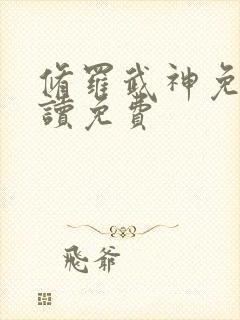 脩羅武神免
讀免費
飛爺